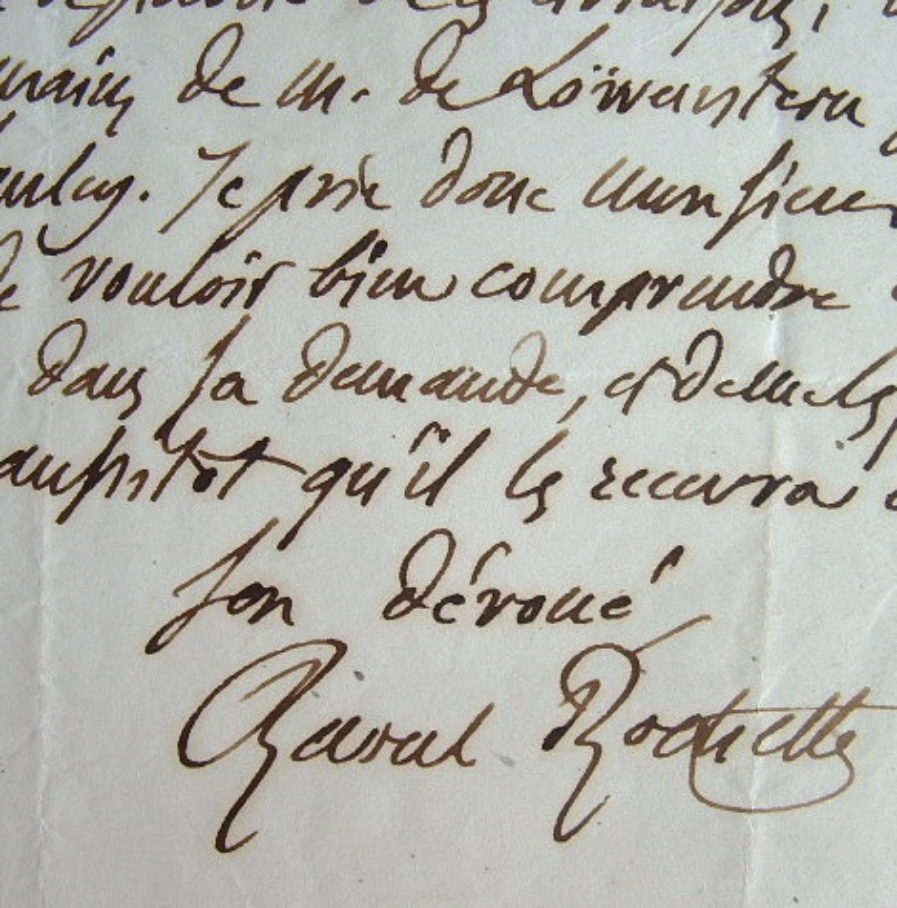 de M. de Löwenstern
Je prie donc Monsieur
de vouloir bien comprendre
dans sa demande, et de me les
aussitôt qu'il les recevra
Son dévoué
Raoul Rochette